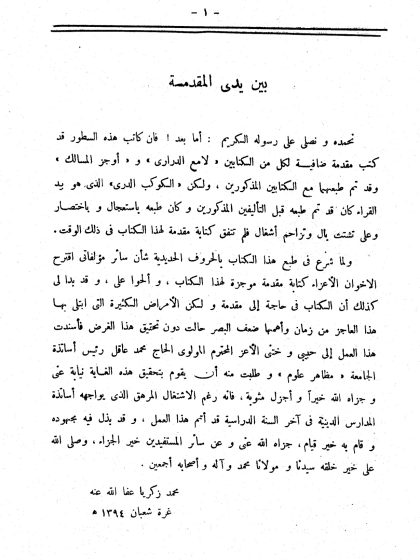 - ١ -
بين يدى المقدمة
نحمده و نصلى على رسوله الكريم : أما بعد ! فان كاتب هذه السطور قد
كتب مقدمة ضافية لكل من الكتابين « لامع الدرارى » و « أوجز المسالك »
وقد تم طبعهما مع الكتابين المذكورين ، ولكن « الكوكب الدرى » الذى هو بيد
القراء كان قد تم طبعه قبل التأليفين المذكورين و كان طبعه باستعجال و باختصار
وعلى تشتت بال و تزاحم أشغال فلم تتفق كتابة مقدمة لهذا الكتاب فى ذلك الوقت.
ولما شرع فى طبع هذا الكتاب بالحروف الحديدية شأن سائر مؤلفاتى اقترح
الاخوان الأعزاء كتابة مقدمة موجزة لهذا الكتاب ، و ألحوا على ، و قد بدا لى
كذلك أن الكتاب فى حاجة إلى مقدمة و لكن الأمراض الكثيرة التى ابتلى بها
هذا العاجز من زمان وأهمها ضعف البصر حالت دون تحقيق هذا الغرض فأسندت
هذا العمل إلى حبيبى و ختنى الأعز المحترم المولوى الحاج محمد عاقل رئيس أساتذة
الجامعة « مظاهر علوم » و طلبت منه أن يقوم بتحقيق هذه الغاية نيابة عنى
و جزاه الله خيراً و أجزل مثوبة ، فانه رغم الاشتغال المرهق الذى يواجهه أساتذة
المدارس الدينية فى آخر السنة الدراسية قد أتم هذا العمل ، و قد بذل فيه مجهوده
و قام به خير قيام ، جزاه الله عنى و عن سائر المستفيدين خير الجزاء، وصلى الله
على خير خلقه سيدنا و مولانا محمد و آله و أصحابه أجمعين .
محمد زكريا عفا الله عنه
غرة شعبان ١٣٩٤ ه